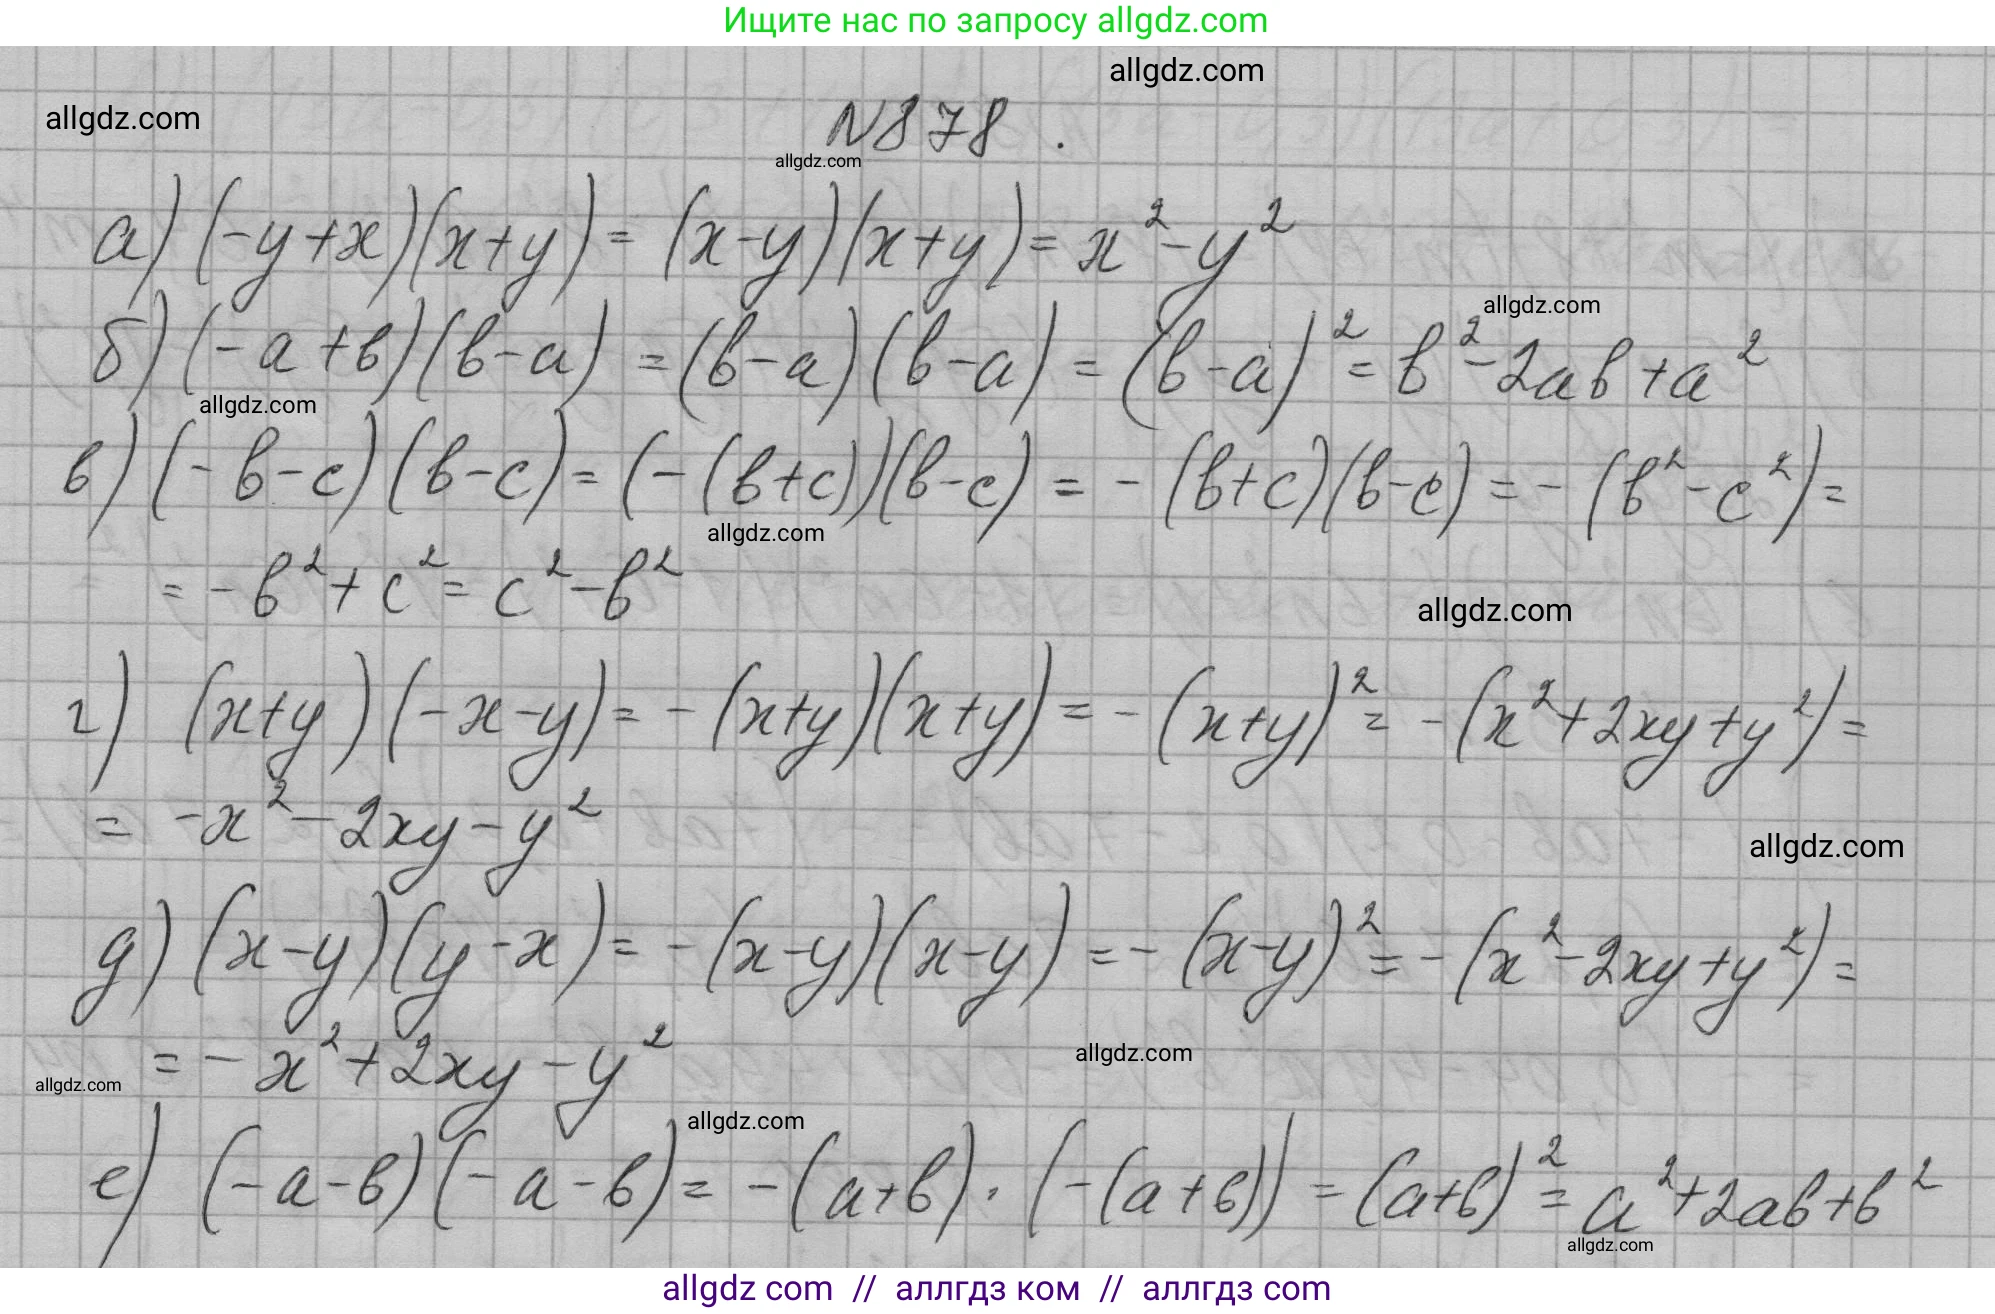 Ищите нас по запросу allgdz.com
allgdz.com
allgdz.com
N878.
allgdz.com
а) (-y+x)(x+y) = (x-y)(x+y) = x²-y²
allgdz.com
б) (-a+b)(b-a) = (b-a)(b-a) = (b-a)² = b²-2ab+a²
allgdz.com
в) (-b-c)(b-c) = (-(b+c))(b-c) = -(b+c)(b-c) = -(b²-c²) =
allgdz.com
= -b²+c² = c²-b²
allgdz.com
г) (x+y)(-x-y) = -(x+y)(x+y) = -(x+y)² = -(x²+2xy+y²) =
= -x²-2xy-y²
allgdz.com
д) (x-y)(y-x) = -(x-y)(x-y) = -(x-y)² = -(x²-2xy+y²) =
= -x²+2xy-y²
allgdz.com
allgdz.com
allgdz.com
е) (-a-b)(-a-b) = -(a+b)·(-(a+b)) = (a+b)² = a²+2ab+b²
allgdz.com
allgdz com // аллгдз ком // аллгдз com